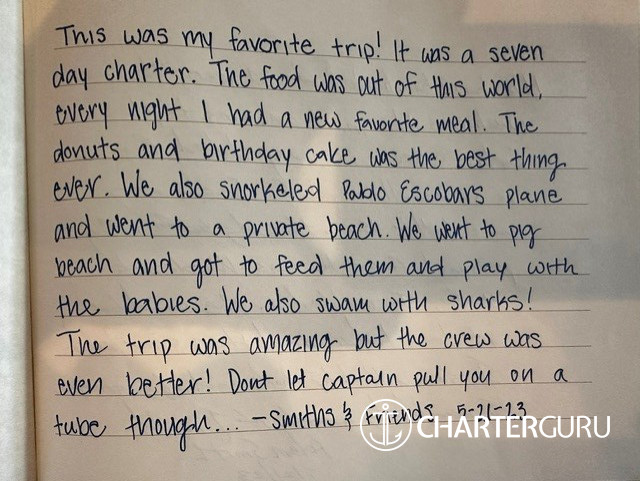 This was my favorite trip! It was a seven
day charter. The food was out of this world,
every night I had a new favorite meal. The
donuts and birthday cake was the best thing
ever. We also snorkeled Pablo Escobars plane
and went to a private beach. We went to pig
beach and got to feed them and play with
the babies. We also swam with sharks!
The trip was amazing but the crew was
even better! Dont let captain pull you on a
tube though... -Smiths & Friends 5-21-23
CHARTERGURU